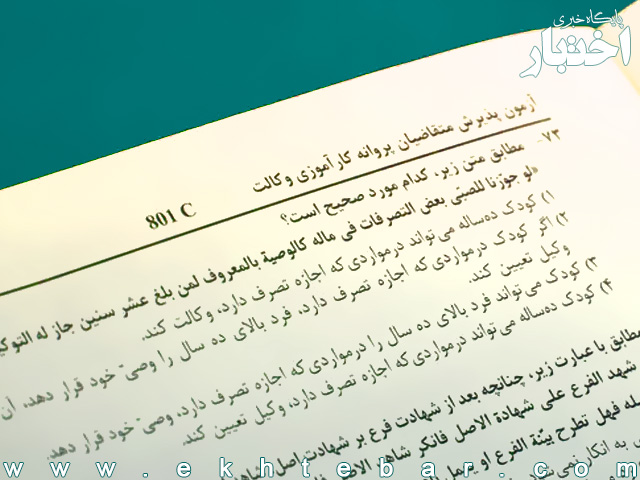 پایگاه خبری
اختبار
آزمون پذیرش متقاضیان پروانه کارآموزی وکالت
801 C
۷۳- مطابق متن زیر، کدام مورد صحیح است؟
«لو جوّزنا للصبّی بعض التصرفات فی ماله کالوصیة بالمعروف لمن بلغ عشر سنین جاز له
۱) کودک ده‌ساله می‌تواند در مواردی که اجازه تصرف دارد، وکالت کند.
۲) اگر کودک در مواردی که اجازه تصرف دارد، فرد بالای ده سال را وصیّ خود قرار دهد، آن
وکیل تعیین کند.
۳) کودک می‌تواند فرد بالای ده سال را در مواردی که اجازه تصرف دارد، وصیّ خود قرار دهد.
۴) کودک ده‌ساله می‌تواند در مواردی که اجازه تصرف دارد، وکیل تعیین کند.
مطابق با عبارت زیر، چنانچه بعد از شهادت فرع بر شهادت اصل،
شهد الفرع علی شهادة الاصل فانکر شاهد الاصل
فهل تطرح بیّنة الفرع او
به انکار
www.ekhtebar.com